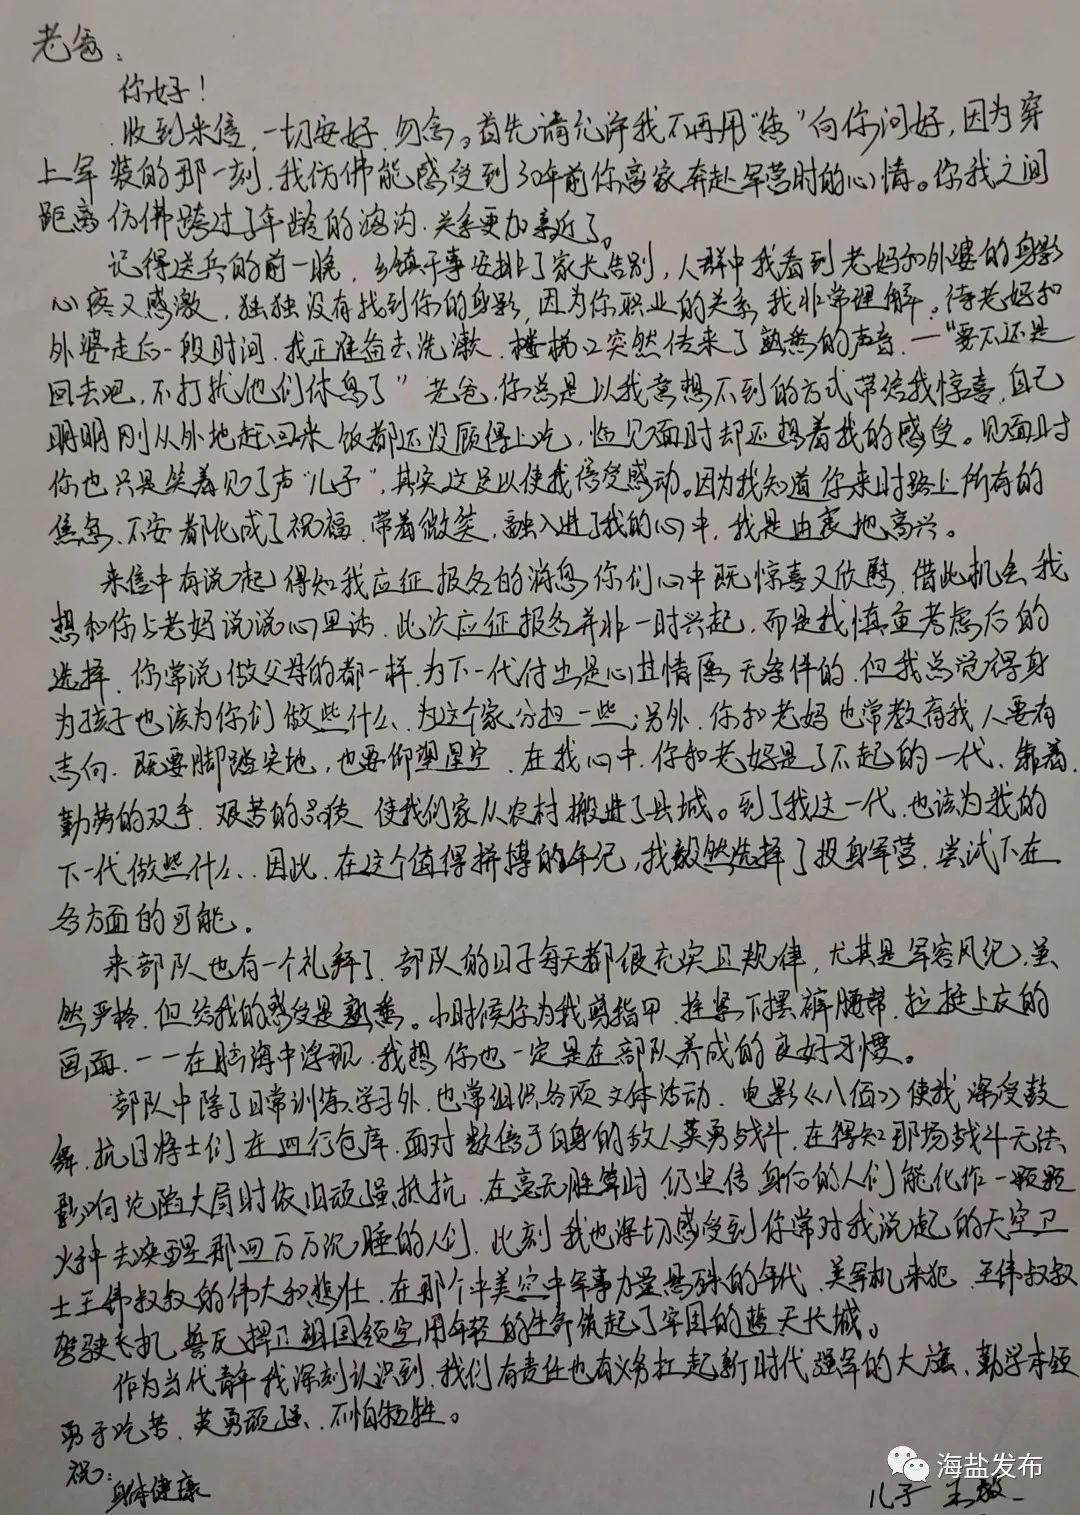 老爸：
你好！
收到来信，一切安好，勿念。首先请允许我不再用“您”向你问好，因为穿
上军装的那一刻，我仿佛能感受到30年前你离家奔赴军营时的心情。你我之间
距离仿佛跨过了年龄的鸿沟，关系更加亲近了。
记得送兵的前一晚，乡镇干事安排了家长告别，人群中我看到老妈和外婆的身影
心疼又感激，独独没有找到你的身影，因为你职业的关系，我非常理解。待老妈和
外婆走后一段时间，我正准备去洗漱，楼梯口突然传来了熟悉的声音，一“要不还是
回去吧，不打扰他们休息了”老爸，你总是以我意想不到的方式带给我惊喜，自己
明明刚从外地赶回来饭都还没顾得上吃，临见面时却还想着我的感受。见面时
你也只是笑着见了声“儿子”，其实这足以使我倍受感动。因为我知道你来时路上所有的
焦急、不安都化成了祝福，带着微笑，融入进了我的心中，我是由衷地高兴。
来信中有说起得知我应征报名的消息你们心中既惊喜又欣慰，借此机会我
想和你与老妈说说心里话，此次应征报名并非一时兴起，而是我慎重考虑后的
选择，你常说做父母的都一样，为下一代付出是心甘情愿、无条件的，但我总觉得身
为孩子也该为你们做些什么、为这个家分担一些；另外，你和老妈也常教育我人要有
志向，既要脚踏实地，也要仰望星空，在我心中，你和老妈是了不起的一代，靠着
勤劳的双手，艰苦的品质，使我们家从农村搬进了县城。到了我这一代，也该为我的
下一代做些什么、因此，在这个值得拼搏的年纪，我毅然选择了投身军营，尝试下在
各方面的可能。
来部队也有一个礼拜了，部队的日子每天都很充实且规律，尤其是军容风纪，虽
然严格，但给我的感受是熟悉。小时候你为我剪指甲，拴紧下摆裤腰带，拉挺上衣的
画面，一一在脑海中浮现，我想你也一定是在部队养成的良好习惯。
部队中除了日常训练、学习外，也常组织各项文体活动，电影《八佰》使我深受鼓
舞，抗日将士们在四行仓库，面对数倍于自身的敌人英勇战斗，在得知那场战斗无法
影响沦陷大局时依旧顽强抵抗，在毫无胜算时，仍坚信身后的人们能化作一颗颗
火种去唤醒那四万万沉睡的人们，此刻我也深切感受到你常对我说起的天空卫
士王伟叔叔的伟大和悲壮，在那个中美空中军事力量悬殊的年代，美军机来犯，王伟叔叔
驾驶飞机，誓死捍卫祖国领空，用年轻的生命筑起了牢固的蓝天长城。
作为当代青年我深刻认识到，我们有责任也有义务扛起新时代强军的大旗，勤学本领
勇于吃苦，英勇顽强、不怕牺牲。
祝：
身体健康
儿子 王
海盐发布